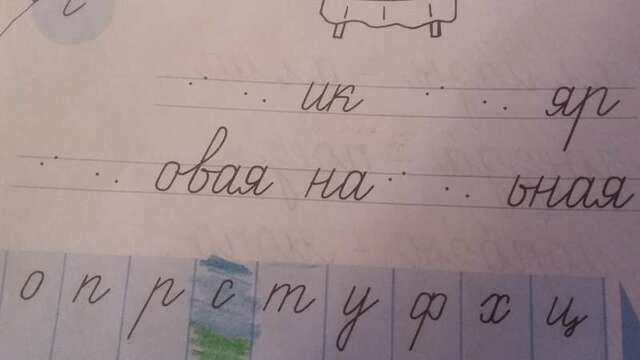 ик яр
овая на ьная
о п р с т у ф х ц